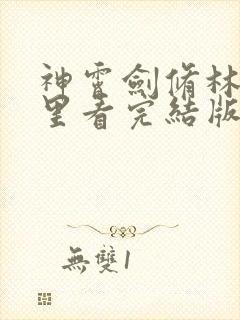 神霄劍脩林
里看完結版
無雙1